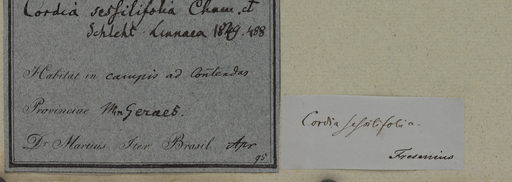 Cordia sessilifolia Cham. et
Schlcht. Linnaea 1829. 488
Habitat in campis ad Contendas
Provinciae Min Geraës.
Dr. Martius. Iter Brasil. Apr
95
Cordia sessilifolia.
Fresenius